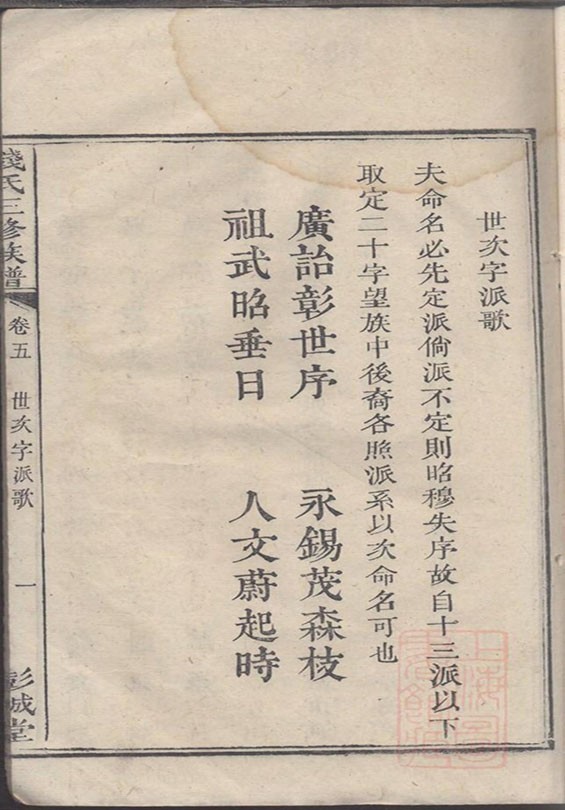 世次字派歌
夫命名必先定派倘派不定則昭穆失序故自十三派以下
取定二十字望族中後裔各照派系以次命名可也
廣詒彰世序 永錫茂森枝
祖武昭垂日 人文蔚起時
錢氏三修族譜 卷五 世次字派歌 一 彭城堂